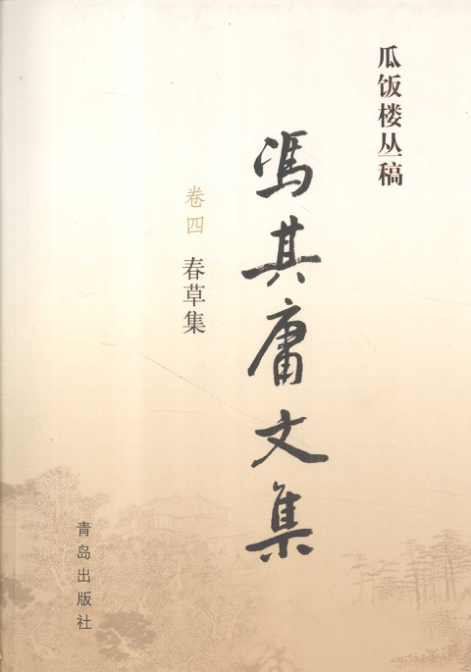 瓜饭楼丛稿
冯其庸文集
卷四 春草集
青岛出版社